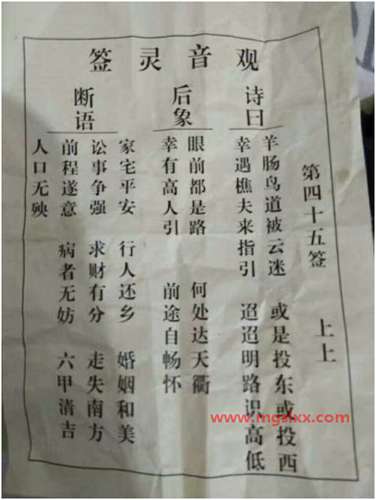 观音灵签
第四十五签 上上
诗曰
羊肠鸟道被云迷 或是投东或投西
幸遇樵夫来指引 迢迢明路识高低
后象
眼前都是路 何处达天衢
幸有高人引 前途自畅怀
断语
家宅平安 行人还乡 婚姻和美
讼事争强 求财有分 走失南方
前程遂意 病者无妨 六甲清吉
人口无殃
www.mgslxx.com